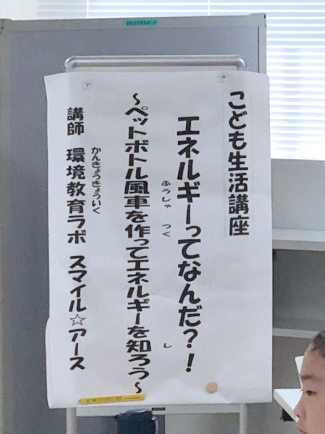 こども生活講座
エネルギーってなんだ?!
ふうしゃ つく し
~ペットボトル風車を作ってエネルギーを知ろう~
かんきょうきょういく
講師 環境教育ラボ スマイル☆アース